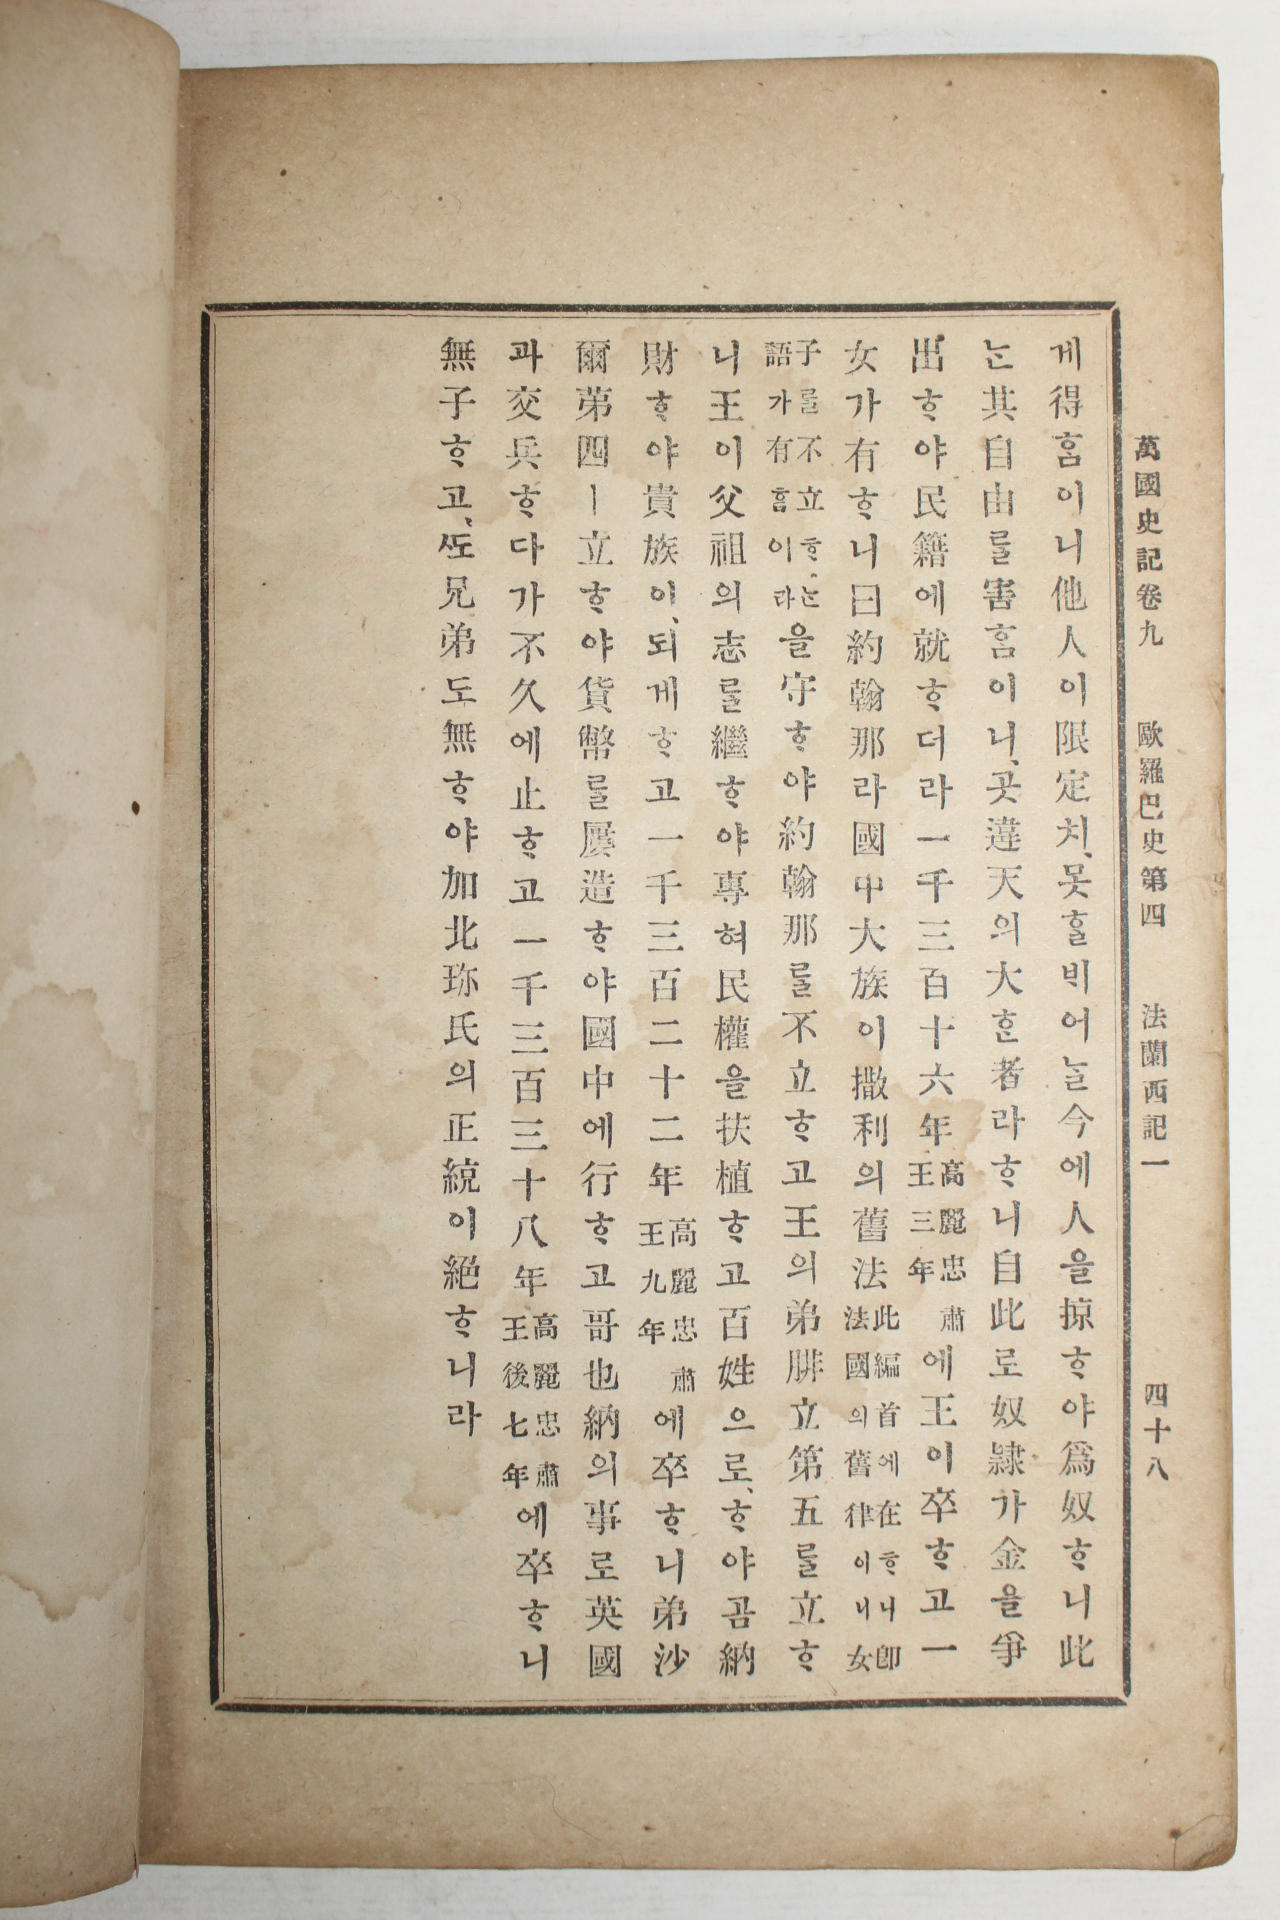 萬國史記卷九 歐羅巴史第四 法蘭西記一 四十八
게得홈이니他人이限定치、못ᄒᆞᆯᄇᆡ어ᄂᆞᆯ今에人을掠ᄒᆞ야爲奴ᄒᆞ니此
ᄂᆞᆫ其自由를害홈이니、곳違天의大ᄒᆞᆫ者라ᄒᆞ니自此로奴隷가金을爭
出ᄒᆞ야民籍에就ᄒᆞ더라一千三百十六年高麗忠肅王三年에王이卒ᄒᆞ고一
女가有ᄒᆞ니曰約翰那라國中大族이撒利의舊法此編首에在ᄒᆞ니卽法國의舊律이니女
子를不立ᄒᆞᄂᆞᆫ語가有홈이라을守ᄒᆞ야約翰那를不立ᄒᆞ고王의弟腓立第五를立ᄒᆞ
니王이父祖의志를繼ᄒᆞ야專혀民權을扶植ᄒᆞ고百姓으로、ᄒᆞ야곰納
財ᄒᆞ야貴族이、되게ᄒᆞ고一千三百二十二年高麗忠肅王九年에卒ᄒᆞ니弟沙
爾第四ㅣ立ᄒᆞ야貨幣를屢造ᄒᆞ야國中에行ᄒᆞ고哥也納의事로英國
과交兵ᄒᆞ다가不久에止ᄒᆞ고一千三百三十八年高麗忠肅王後七年에卒ᄒᆞ니
無子ᄒᆞ고、ᄯᅩ兄弟도無ᄒᆞ야加北珎氏의正統이絕ᄒᆞ니라